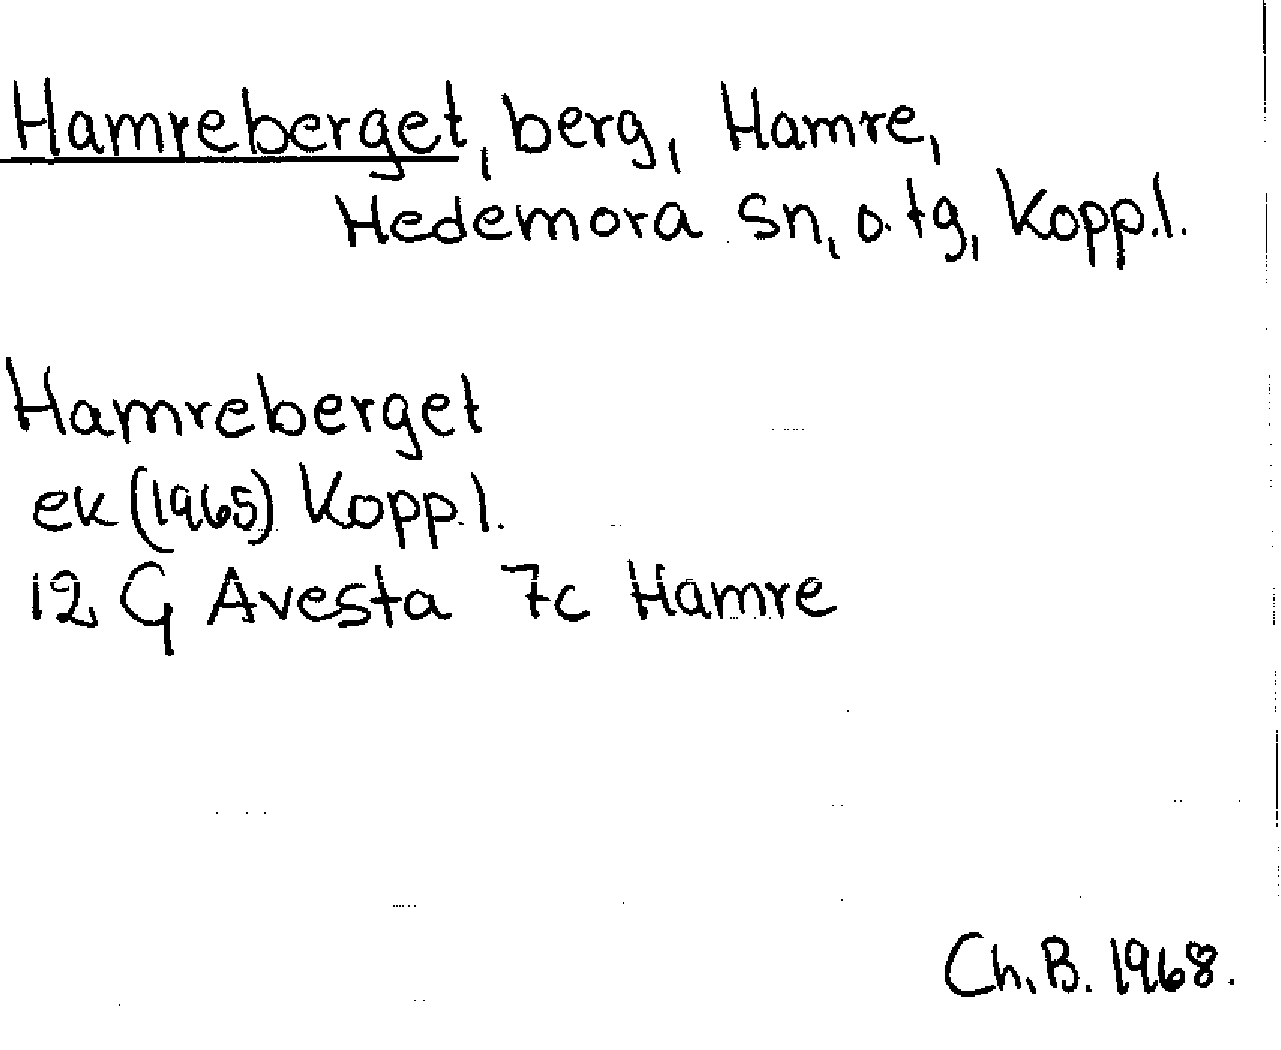 Hamreberget, berg, Hamre,
Hedemora sn, o. tg, Kopp.l.
Hamreberget
ek (1965) Kopp.l.
12 G Avesta 7c Hamre
Ch.B. 1968.